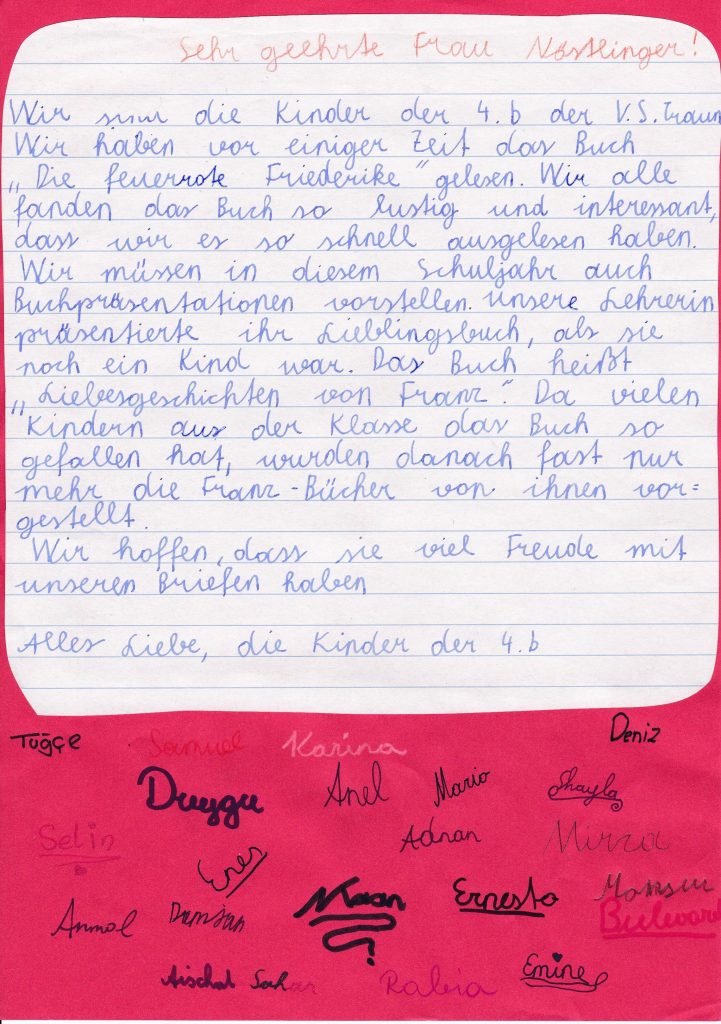 Sehr geehrte Frau Nöstlinger!
Wir sind die Kinder der 4.b der V.S.Traun
Wir haben vor einiger Zeit das Buch
„Die feuerrote Friederike" gelesen. Wir alle
fanden das Buch so lustig und interessant,
dass wir es so schnell ausgelesen haben.
Wir müssen in diesem Schuljahr auch
Buchpräsentationen vorstellen. Unsere Lehrerin
präsentierte ihr Lieblingsbuch, als sie
noch ein Kind war. Das Buch heißt
„Liebesgeschichten von Franz". Da vielen
Kindern aus der Klasse das Buch so
gefallen hat, wurden danach fast nur
mehr die Franz-Bücher von ihnen vor=
gestellt.
Wir hoffen, dass sie viel Freude mit
unseren Briefen haben
Alles Liebe, die Kinder der 4.b
Tuğçe Samuel Karina Deniz
Duygu Anel Mario Shayla
Selin Adnan Mirza
Enes
Anmol Damjan Kaan Ernesto
Aischat Sahar Rabia Emine